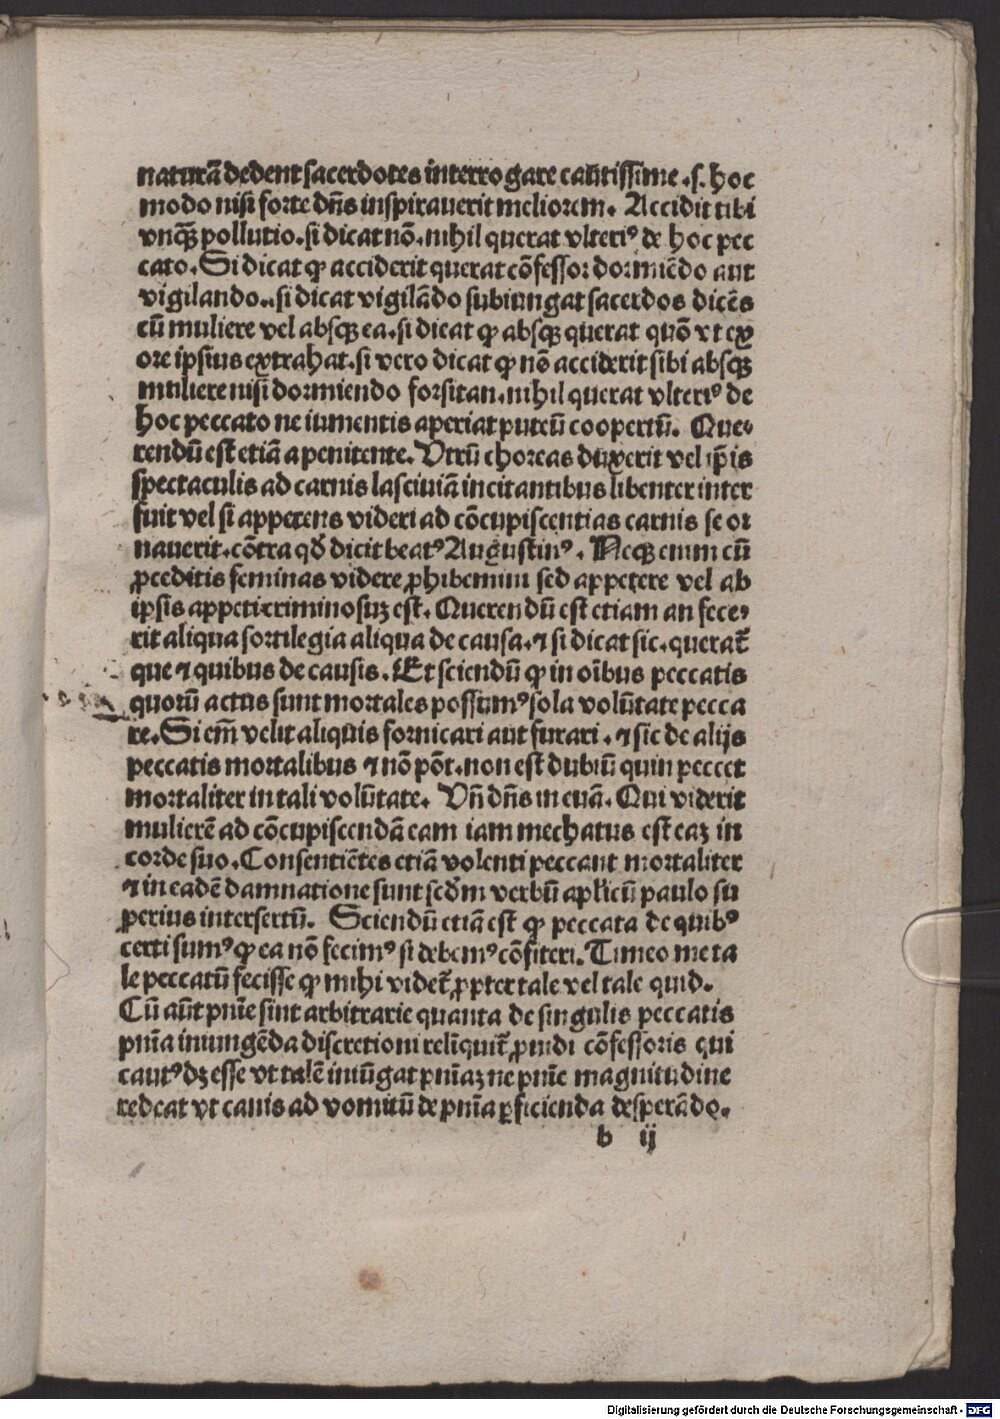 naturã dedent sacerdotes interrogare cautissime . s. hoc
modo nisi forte dñs inspirauerit meliorem. Accidit tibi
vnqꝫ pollutio. si dicat nõ. nihil querat vlteriꝰ de hoc pec
cato. Si dicat ꝙ acciderit querat cõfessor dormiẽdo aut
vigilando.. si dicat vigilãdo subiungat sacerdos dicẽs
cũ muliere vel absqꝫ ea. si dicat ꝙ absqꝫ querat quõ vt ex
ore ipsius extrahat. si vero dicat ꝙ nõ acciderit sibi absqꝫ
muliere nisi dormiendo forsitan. nihil querat vlteriꝰ de
hoc peccato ne iumentis aperiat puteũ coopertũ. Que⸗
rendũ est etiã a penitente. Vtrũ choreas duxerit vel ip̃is
spectaculis ad carnis lasciuiã incitantibus libenter inter
fuit vel si appetens videri ad cõcupiscentias carnis se or
nauerit. cõtra qđ dicit beatꝰ Augustinꝰ . Neqꝫ enim cũ
ꝓceditis feminas videre ꝓhibemini sed appetere vel ab
ipsis appeti criminosuꝫ est. Querendũ est etiam an fece⸗
rit aliqua sortilegia aliqua de causa. ⁊ si dicat sic. querat̃
que ⁊ quibus de causis. Et sciendũ ꝙ in oĩbus peccatis
quorũ actus sunt mortales possumꝰ sola volũtate pecca
re. Si em̃ velit aliquis fornicari aut furari . ⁊ sic de alijs
peccatis mortalibus ⁊ nõ põt. non est dubiũ quin peccet
mortaliter in tali volũtate. Vñ dñs in euã. Qui viderit
mulierẽ ad cõcupiscendã eam iam mechatus est eaꝫ in
corde suo. Consentiẽtes etiã volenti peccant mortaliter
⁊ in eadẽ damnatione sunt scđm verbũ apl̃icũ paulo su
perius insertũ. Sciendũ etiã est ꝙ peccata de quibꝰ
certi sumꝰ ꝙ ea nõ fecimꝰ si debemꝰ cõfiteri. Timeo me ta
le peccatũ fecisse ꝙ mihi videt̃ ꝓpter tale vel tale quid.
Cũ aũt pñie sint arbitrarie quanta de singulis peccatis
pñia iniungẽda discretioni relĩquit̃ ꝓuidi cõfessoris qui
cautꝰ dꝫ esse vt talẽ iniũgat pñiaꝫ ne pñie magnitudine
redeat vt canis ad vomitũ de pñia ꝑficienda desperãdo.
b ij
Digitalisierung gefördert durch die Deutsche Forschungsgemeinschaft - DFG